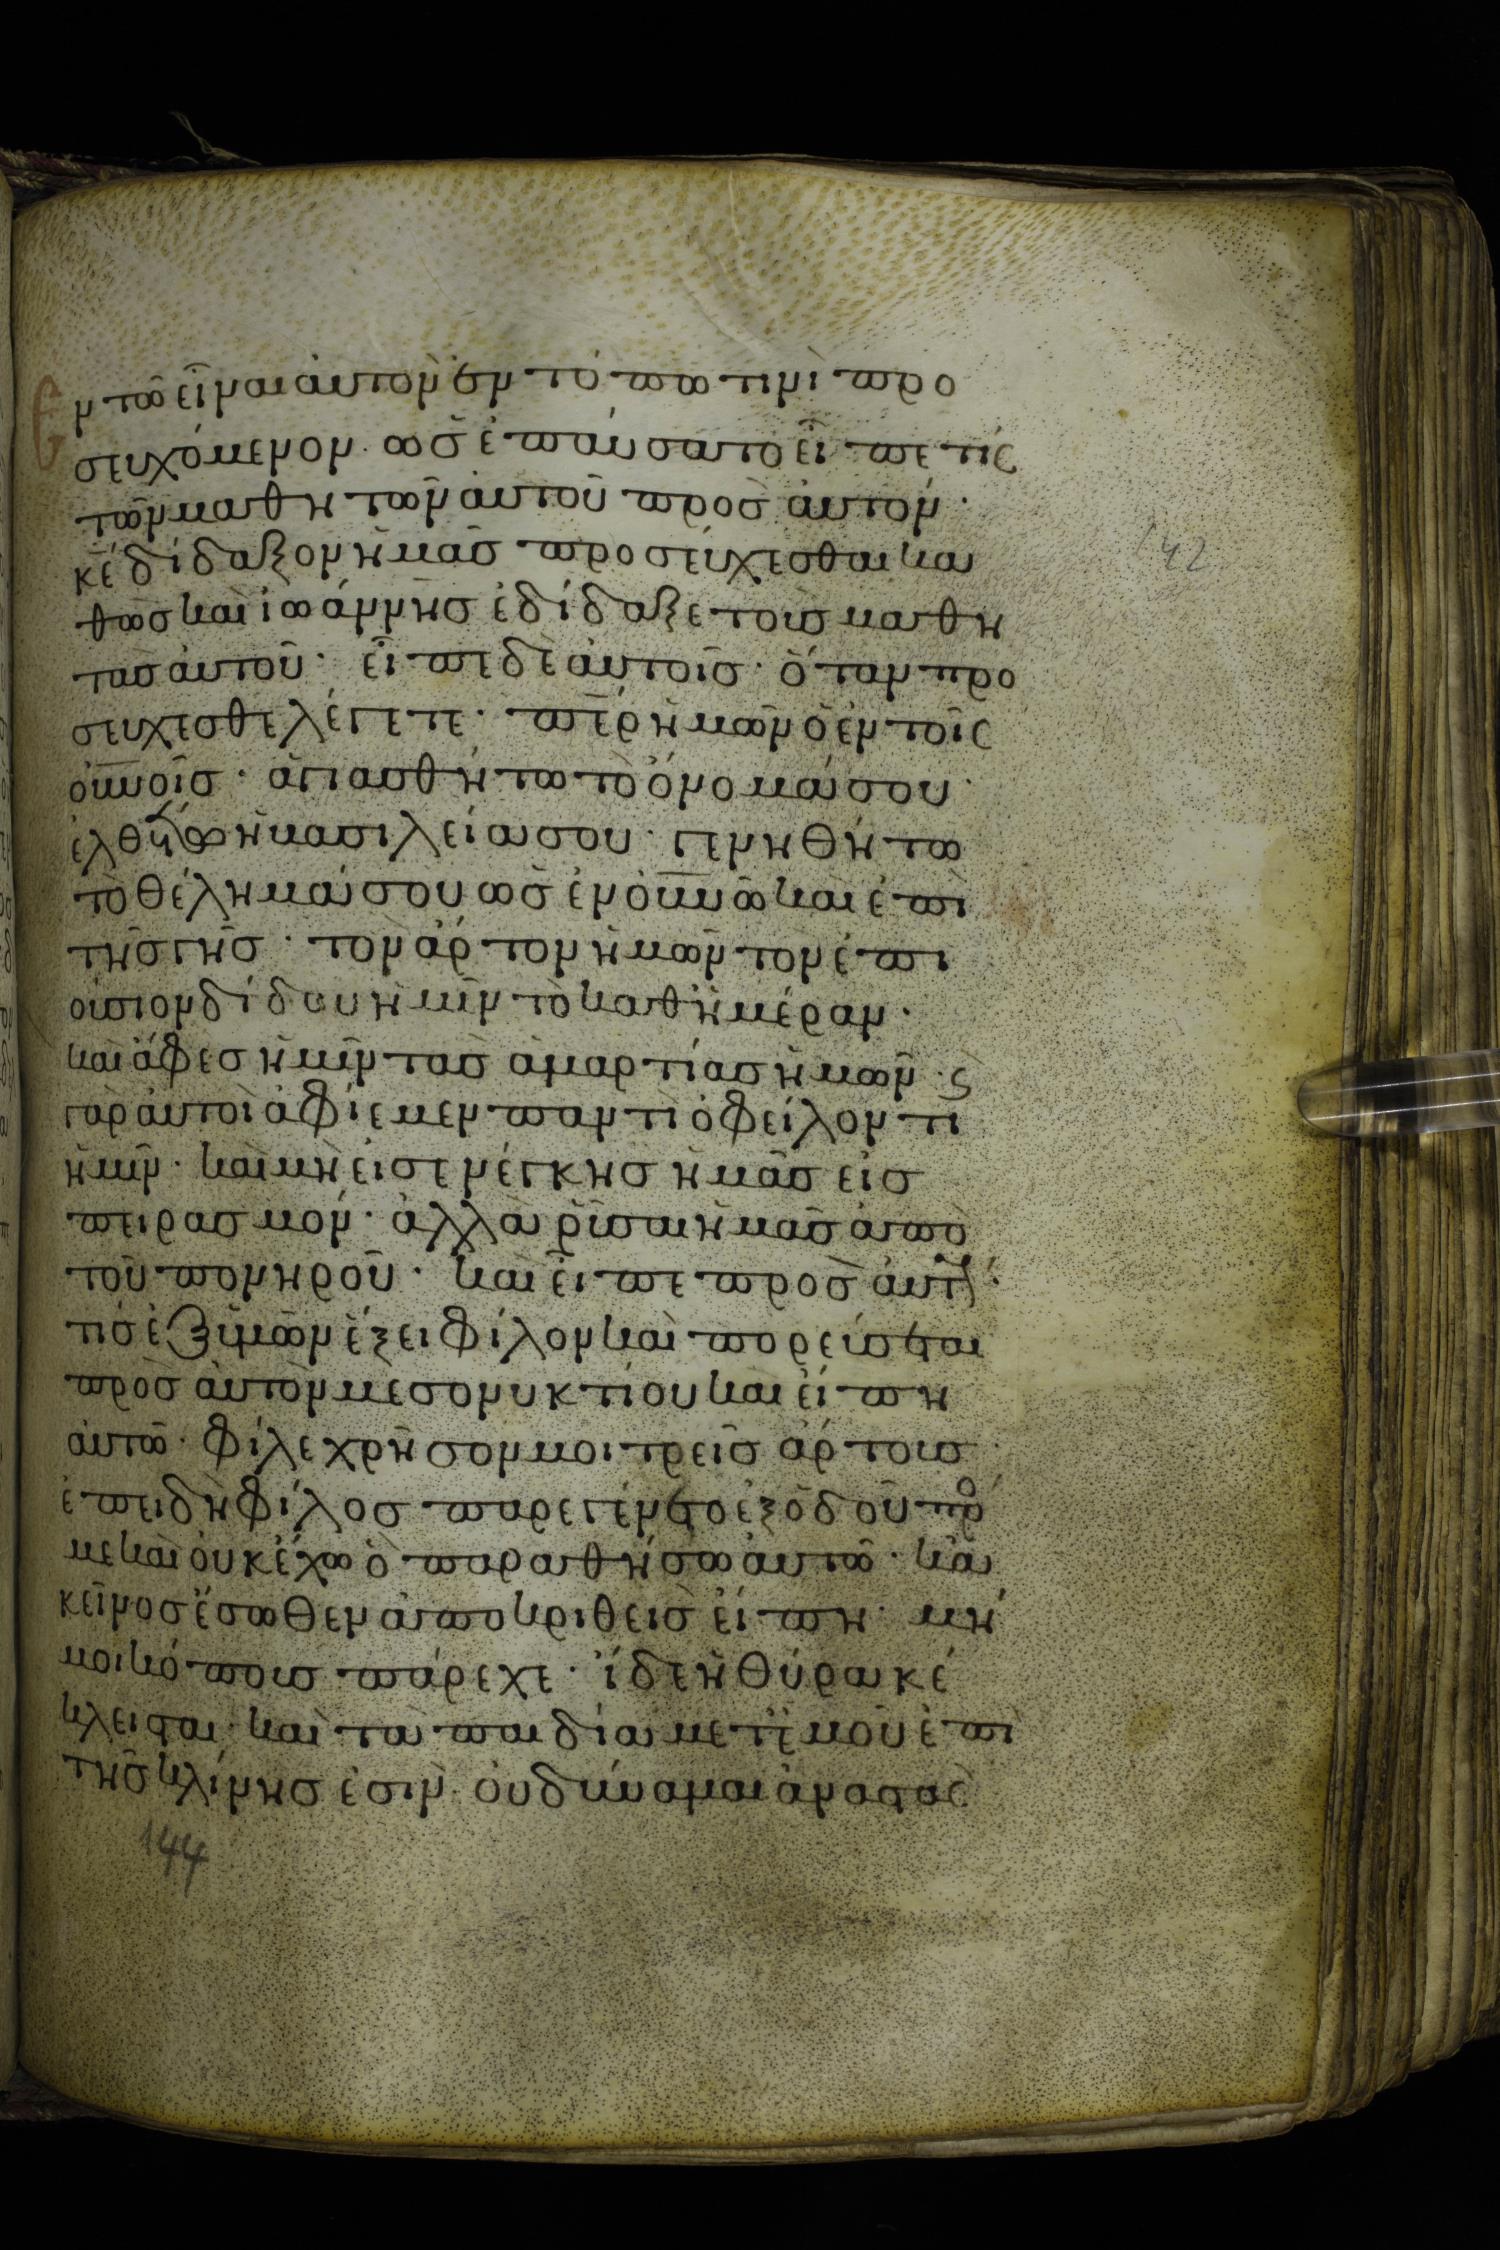 Ἐν τῶ εἶναι αὐτὸν ἐν τόπω τινὶ προ
σευχόμενον· ὡς ἐπαύσατο εἶπέ τις
τῶν μαθητῶν αὐτοῦ πρὸς αὐτόν·
κ̅ε̅ δίδαξον ἡμᾶς προσεύχεσθαι κα
θὼς καὶ ἰωάννης ἐδίδαξε τοὺς μαθη
τὰς αὐτοῦ· εἶπε δὲ αὐτοῖς· ὅταν προ
σεύχεσθε λέγετε· π̅ε̅ρ ἡμῶν ὁ ἐν τοῖς
ο̅υ̅νοῖς· ἁγιασθήτω τὸ ὄνομά σου·
ἐλθέτω ἡ βασιλεία σου· γενηθήτω
τὸ θέλημά σου ὡς ἐν ο̅υ̅νῶ καὶ ἐπὶ
τῆς γῆς· τὸν ἄρτον ἡμῶν τὸν ἐπι
ούσιον δίδου ἡμῖν τὸ καθ ἡμέραν·
καὶ ἄφες ἡμῖν τὰς ἁμαρτίας ἡμῶν· ϛ
γὰρ αὐτοὶ ἀφίεμεν παντὶ ὀφείλοντι
ἡμῖν· καὶ μὴ εἰσενέγκης ἡμᾶς εἰς
πειρασμόν· ἀλλὰ ῥῦσαι ἡμᾶς ἀπὸ
τοῦ πονηροῦ· καὶ εἶπε πρὸς αὐτούς·
τίς ἐξ ὑμῶν ἕξει φίλον καὶ πορεύσεται
πρὸς αὐτὸν μεσονυκτίου καὶ εἴπη
αὐτῶ· φίλε χρῆσόν μοι τρεῖς ἄρτους·
ἐπειδὴ φίλος παρεγένετο ἐξ ὁδοῦ πρό
με καὶ οὐκ ἔχω ὃ παραθήσω αὐτῶ· κἀ
κεῖνος ἔσωθεν ἀποκριθεὶς εἴπη· μή
μοι κόπους πάρεχε· ἴδε ἡ θύρα κέ
κλεισται· καὶ τὰ παιδία μετ ἐμοῦ ἐπὶ
τῆς κλίνης εἰσίν· οὐ δύναμαι ἀναστὰς
142
144